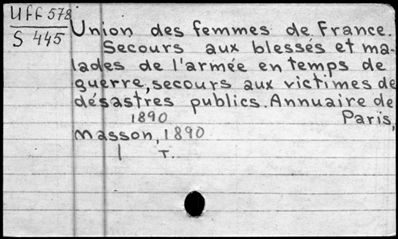 Uff 578
S 445
Union des femmes de France.
Secours aux blessés et ma-
lades de l'armée en temps de
guerre, secours aux victimes de
désastres publics. Annuaire de
1890 Paris,
Masson, 1890
1 T.